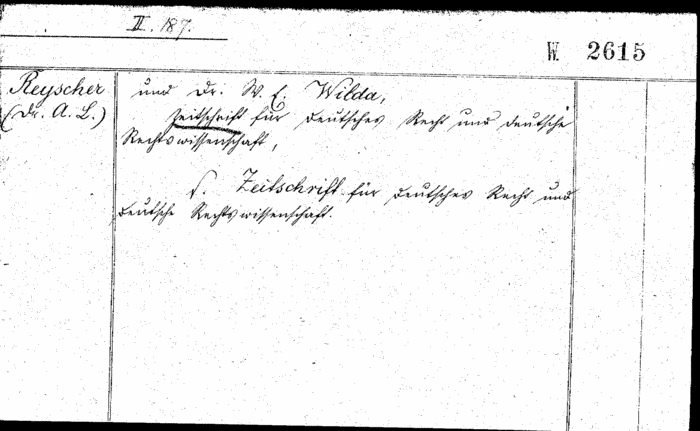 II. 187.
W. 2615
Reyscher
(Dr. A. L.)
und Dr. W. E. Wilda,
Zeitschrift für deutsches Recht und deutsche
Rechtswissenschaft,
s. Zeitschrift für deutsches Recht und
deutsche Rechtswissenschaft.